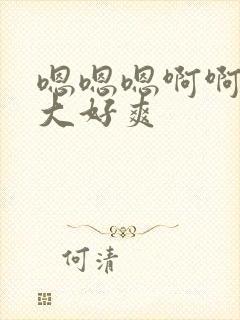 嗯嗯嗯啊啊
大好爽
何清